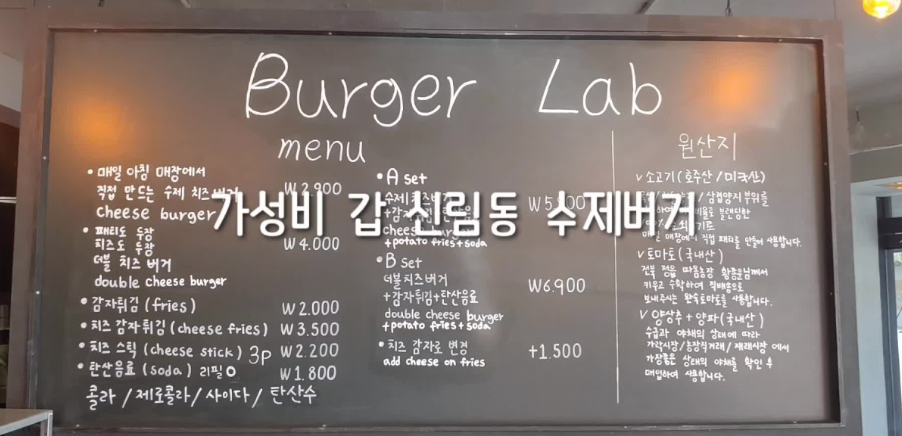 Burger Lab
menu
• 매일 아침 매장에서
직접 만드는 수제 치즈버거 ₩2.900
cheese burger
• 패티도 두장
치즈도 두장 ₩4.000
더블 치즈 버거
double cheese burger
• 감자튀김 (fries) ₩2.000
• 치즈 감자튀김 (cheese fries) ₩3.500
• 치즈 스틱 (cheese stick) 3p ₩2.200
• 탄산음료 (soda) 리필O ₩1.800
콜라 / 제로콜라 / 사이다 / 탄산수
• A set
수제치즈버거
+potato fries+soda
• B set
더블치즈버거 ₩6.900
+감자튀김+탄산음료
double cheese burger
+potato fries+soda
• 치즈 감자로 변경 +1.500
add cheese on fries
원산지
v 소고기 (호주산/미국산)
매일 매장에서 직접 패티를 만들어 사용합니다.
v 토마토 (국내산)
키우고 수확하여 직배송으로
보내주시는 완숙토마토를 사용합니다.
v 양상추 + 양파 (국내산)
수급과 야채의 상태에 따라
가락시장/농장직거래/재래시장 에서
가장좋은 상태의 야채를 확인 후
매입하여 사용합니다.
가성비 갑 신림동 수제버거